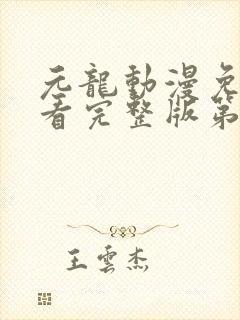 元龍動漫免
看完整版第
王雲杰